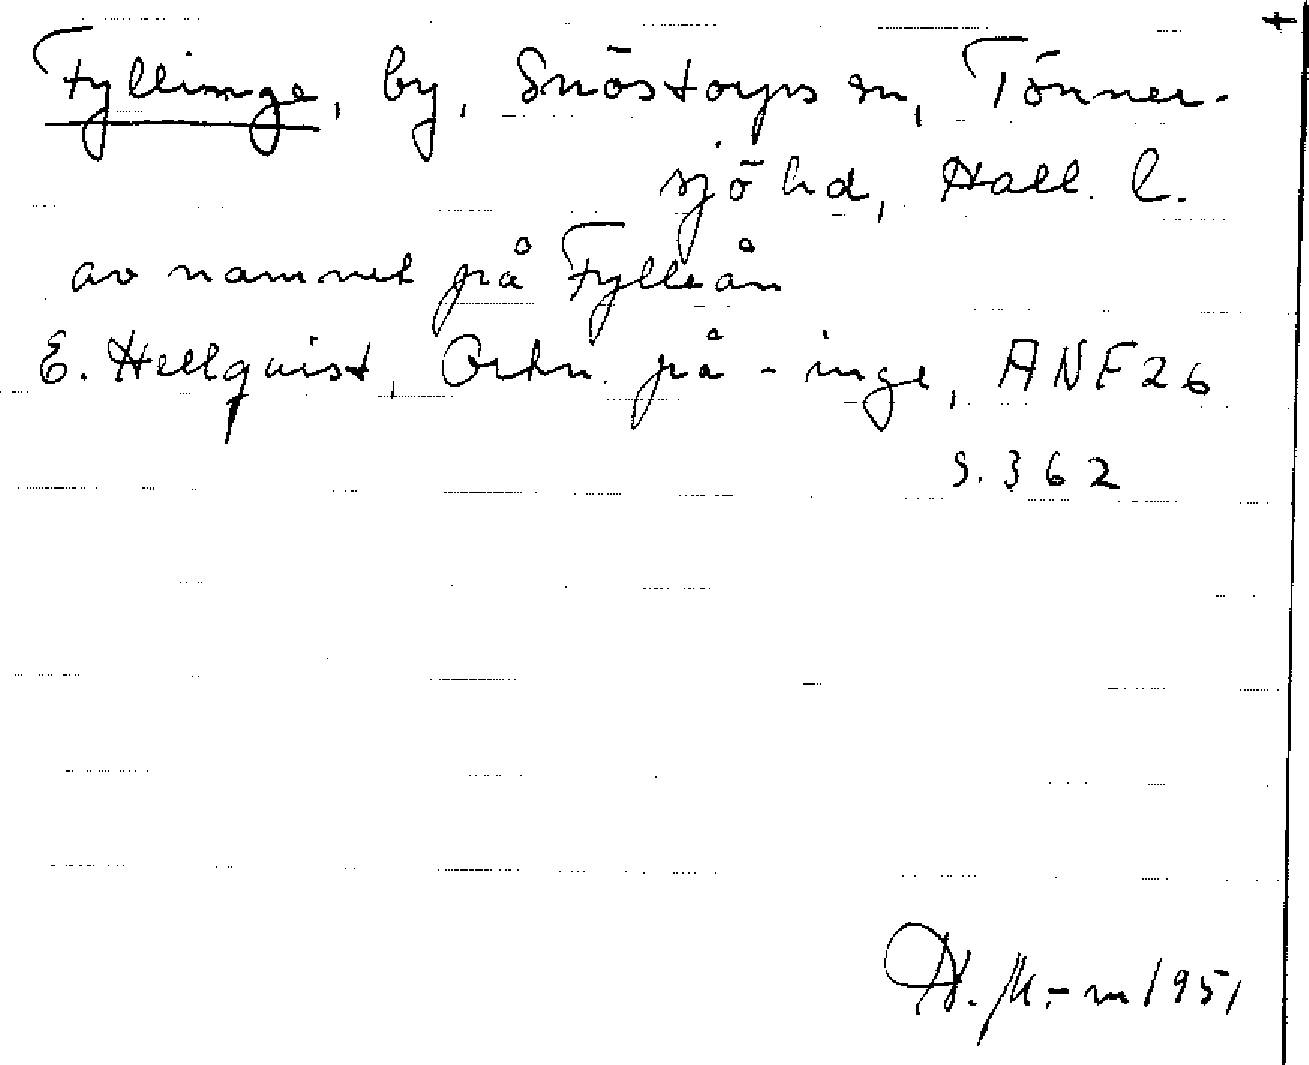 +
Fyllinge, by, Snöstorps sn, Tönner-
sjö hd, Hall. l.
av namnet på Fylleån
E. Hellquist, Ortn. på -inge, ANF 26
s. 362
H. M-m 1951